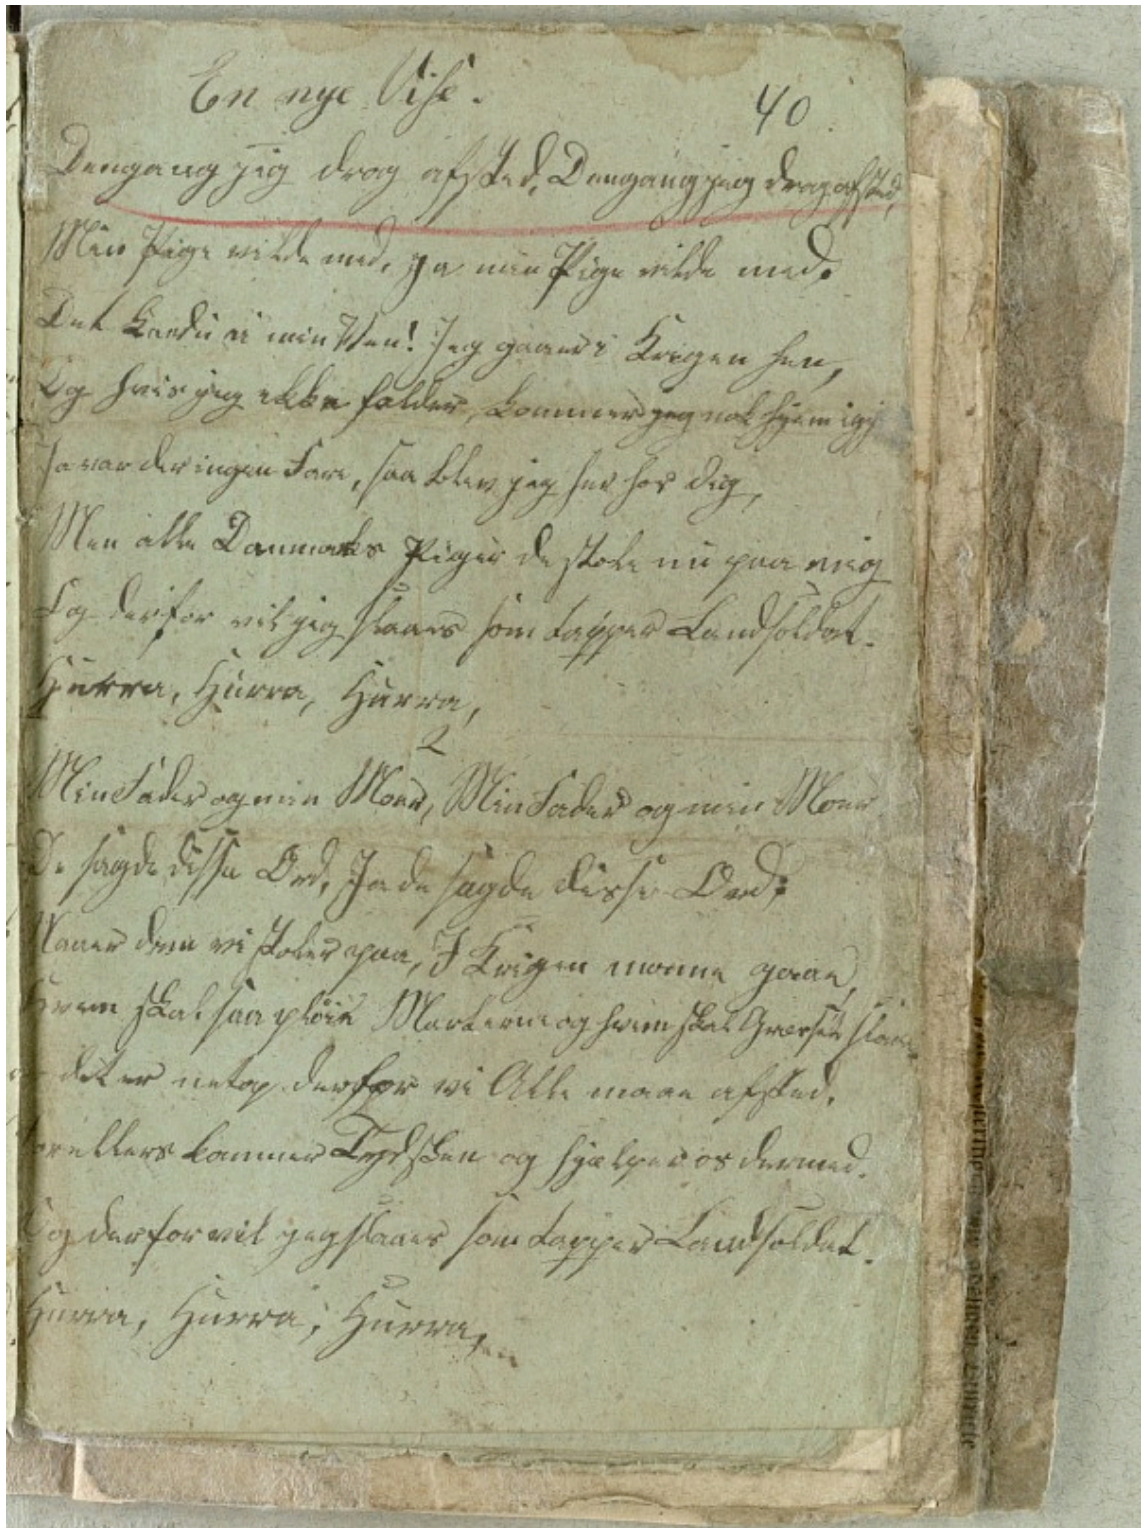 En nye Vise.
40
Dengang jeg drog afsted, Dengang jeg drog afsted,
Min Pige vilde med, ja min Pige vilde med.
Det kandu ei min Ven! Jeg gaaer i Krigen hen,
Og hvis jeg ikke falder, kommer jeg nok hjem igj
Ja var der ingen Fare, saa blev jeg her hos dig,
Men alle Danmarks Piger de stole nu paa mig
Og derfor vil jeg slaaes som tapper Landsoldat.
Hurra, Hurra, Hurra,
2
Min Fader og min Moer, Min Fader og min Moer
De sagde disse Ord, Ja de sagde disse Ord:
Naaer dem vi stoler paa, I Krigen monne gaae,
Hvem skal saa pløie Markerne og hvem skal Græsset slaae
det er netop derfor vi Alle maae afsted,
for ellers kommer Tydsken og hjælper os dermed.
Og derfor vil jeg slaaes som tapper Landsoldat.
Hurra, Hurra, Hurra,